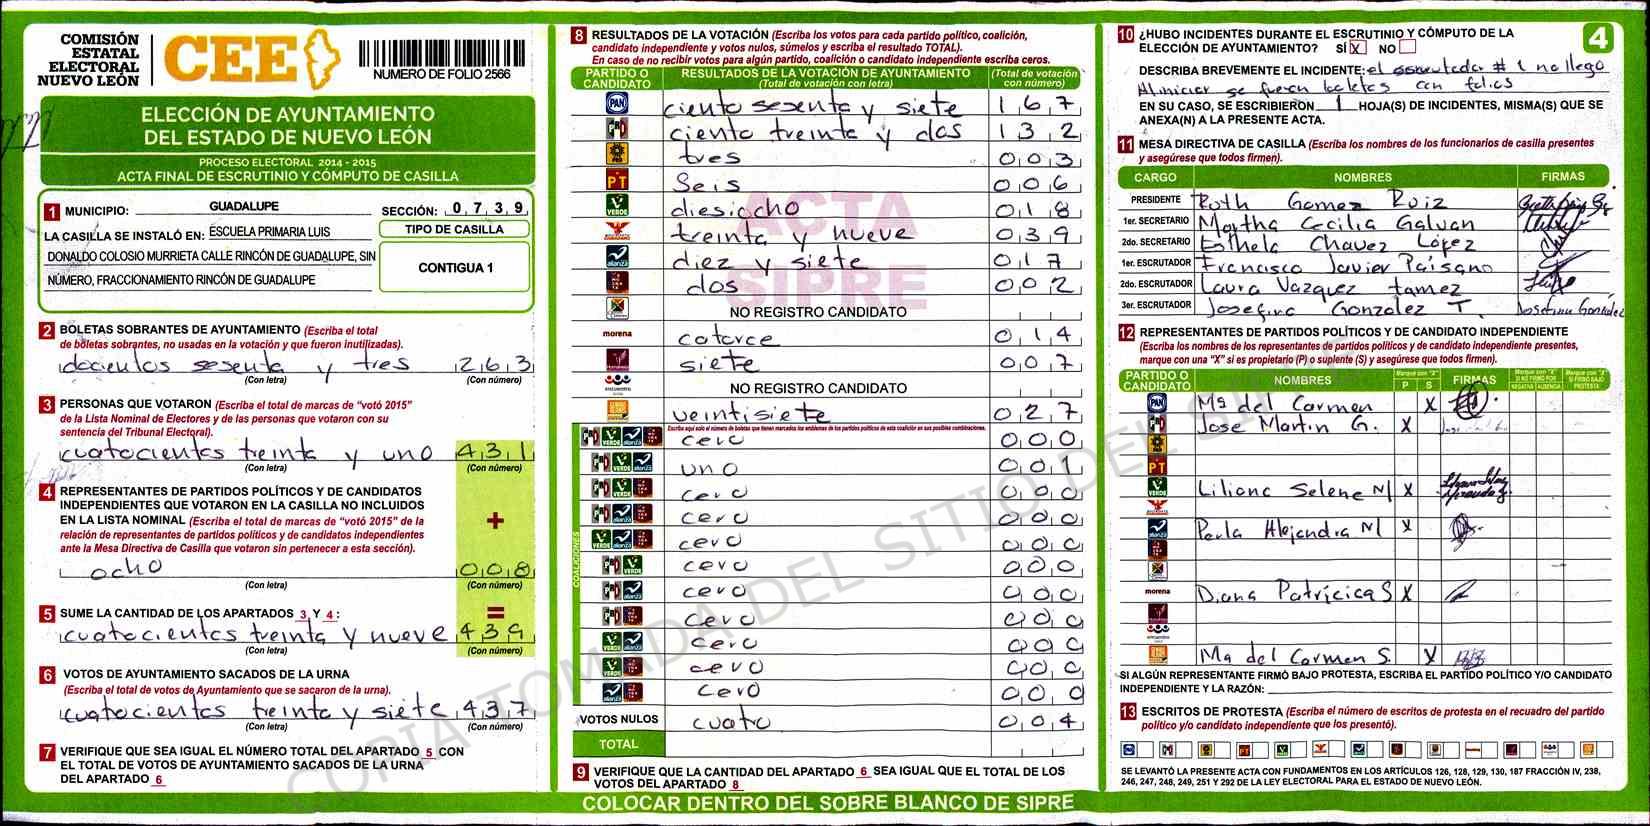 COMISIÓN
ESTATAL
ELECTORAL
NUEVO LEÓN
CEE
NUMERO DE FOLIO 2566
ELECCIÓN DE AYUNTAMIENTO
DEL ESTADO DE NUEVO LEÓN
PROCESO ELECTORAL 2014 - 2015
ACTA FINAL DE ESCRUTINIO Y CÓMPUTO DE CASILLA
1 MUNICIPIO: GUADALUPE SECCIÓN: 0 7 3 9
LA CASILLA SE INSTALÓ EN: ESCUELA PRIMARIA LUIS
DONALDO COLOSIO MURRIETA CALLE RINCÓN DE GUADALUPE, SIN
NÚMERO, FRACCIONAMIENTO RINCÓN DE GUADALUPE
TIPO DE CASILLA
CONTIGUA 1
2 BOLETAS SOBRANTES DE AYUNTAMIENTO (Escriba el total
de boletas sobrantes, no usadas en la votación y que fueron inutilizadas).
docientos sesenta y tres 2 6 3
(Con letra) (Con número)
3 PERSONAS QUE VOTARON (Escriba el total de marcas de “votó 2015”
de la Lista Nominal de Electores y de las personas que votaron con su
sentencia del Tribunal Electoral).
cuatocientos treinta y uno 4 3 1
(Con letra) (Con número)
4 REPRESENTANTES DE PARTIDOS POLÍTICOS Y DE CANDIDATOS
INDEPENDIENTES QUE VOTARON EN LA CASILLA NO INCLUIDOS
EN LA LISTA NOMINAL (Escriba el total de marcas de “votó 2015” de la
relación de representantes de partidos políticos y de candidatos independientes
ante la Mesa Directiva de Casilla que votaron sin pertenecer a esta sección).
+
ocho 0 0 8
(Con letra) (Con número)
=
5 SUME LA CANTIDAD DE LOS APARTADOS 3 Y 4 :
cuatocientos treinta y nueve 4 3 9
(Con letra) (Con número)
6 VOTOS DE AYUNTAMIENTO SACADOS DE LA URNA
(Escriba el total de votos de Ayuntamiento que se sacaron de la urna).
cuatocientos treinta y siete 4 3 7
(Con letra) (Con número)
7 VERIFIQUE QUE SEA IGUAL EL NÚMERO TOTAL DEL APARTADO 5 CON
EL TOTAL DE VOTOS DE AYUNTAMIENTO SACADOS DE LA URNA
DEL APARTADO 6
8 RESULTADOS DE LA VOTACIÓN (Escriba los votos para cada partido político, coalición,
candidato independiente y votos nulos, súmelos y escriba el resultado TOTAL).
En caso de no recibir votos para algún partido, coalición o candidato independiente escriba ceros.
PARTIDO O CANDIDATO
RESULTADOS DE LA VOTACIÓN DE AYUNTAMIENTO
(Total de votación con letra)
(Total de votación con número)
PAN ciento sesenta y siete 1 6 7
PRI ciento treinta y dos 1 3 2
PRD tres 0 0 3
PT Seis 0 0 6
VERDE diesiocho 0 1 8
treinta y nueve 0 3 9
alianza diez y siete 0 1 7
dos 0 0 2
NO REGISTRO CANDIDATO
morena catorce 0 1 4
siete 0 0 7
encuentro NO REGISTRO CANDIDATO
veintisiete 0 2 7
Escriba aquí solo el número de boletas que tienen marcados los emblemas de los partidos políticos de esta coalición en sus posibles combinaciones.
COALICIONES
cero 0 0 0
uno 0 0 1
cero 0 0 0
cero 0 0 0
cero 0 0 0
cero 0 0 0
cero 0 0 0
cero 0 0 0
cero 0 0 0
cero 0 0 0
cero 0 0 0
VOTOS NULOS cuatro 0 0 4
TOTAL
9 VERIFIQUE QUE LA CANTIDAD DEL APARTADO 6 SEA IGUAL QUE EL TOTAL DE LOS
VOTOS DEL APARTADO 8
ACTA
SIPRE
10 ¿HUBO INCIDENTES DURANTE EL ESCRUTINIO Y CÓMPUTO DE LA
ELECCIÓN DE AYUNTAMIENTO? SÍ X NO
4
DESCRIBA BREVEMENTE EL INCIDENTE: el escrutador # 1 no llego
Al iniciar se fueron boletas con folios
EN SU CASO, SE ESCRIBIERON 1 HOJA(S) DE INCIDENTES, MISMA(S) QUE SE
ANEXA(N) A LA PRESENTE ACTA.
11 MESA DIRECTIVA DE CASILLA (Escriba los nombres de los funcionarios de casilla presentes
y asegúrese que todos firmen).
CARGO NOMBRES FIRMAS
PRESIDENTE Ruth Gomez Ruiz
1er. SECRETARIO Martha Cecilia Galvan
2do. SECRETARIO Esthela Chavez López
1er. ESCRUTADOR Francisco Javier Paisano
2do. ESCRUTADOR Laura Vazquez tamez
3er. ESCRUTADOR Josefina Gonzalez T. Josefina González
12 REPRESENTANTES DE PARTIDOS POLÍTICOS Y DE CANDIDATO INDEPENDIENTE
(Escriba los nombres de los representantes de partidos políticos y de candidato independiente presentes,
marque con una “X” si es propietario (P) o suplente (S) y asegúrese que todos firmen).
PARTIDO O CANDIDATO
NOMBRES
Marque con "X"
P S
FIRMAS
Marque con "X" SI NO FIRMÓ POR NEGATIVA AUSENCIA
Marque con "X" SI FIRMÓ BAJO PROTESTA
PAN Mª del Carmen X
PRI Jose Martin G. X
PRD
PT
VERDE Liliana Selene N/ X
alianza Perla Alejandra N/ X
morena Diana Patricica S X
encuentro
Ma del Carmen S. X
SI ALGÚN REPRESENTANTE FIRMÓ BAJO PROTESTA, ESCRIBA EL PARTIDO POLÍTICO Y/O CANDIDATO
INDEPENDIENTE Y LA RAZÓN:
13 ESCRITOS DE PROTESTA (Escriba el número de escritos de protesta en el recuadro del partido
político y/o candidato independiente que los presentó).
SE LEVANTÓ LA PRESENTE ACTA CON FUNDAMENTOS EN LOS ARTÍCULOS 126, 128, 129, 130, 187 FRACCIÓN IV, 238,
246, 247, 248, 249, 251 Y 292 DE LA LEY ELECTORAL PARA EL ESTADO DE NUEVO LEÓN.
COLOCAR DENTRO DEL SOBRE BLANCO DE SIPRE
COPIA TOMADA DEL SITIO DEL